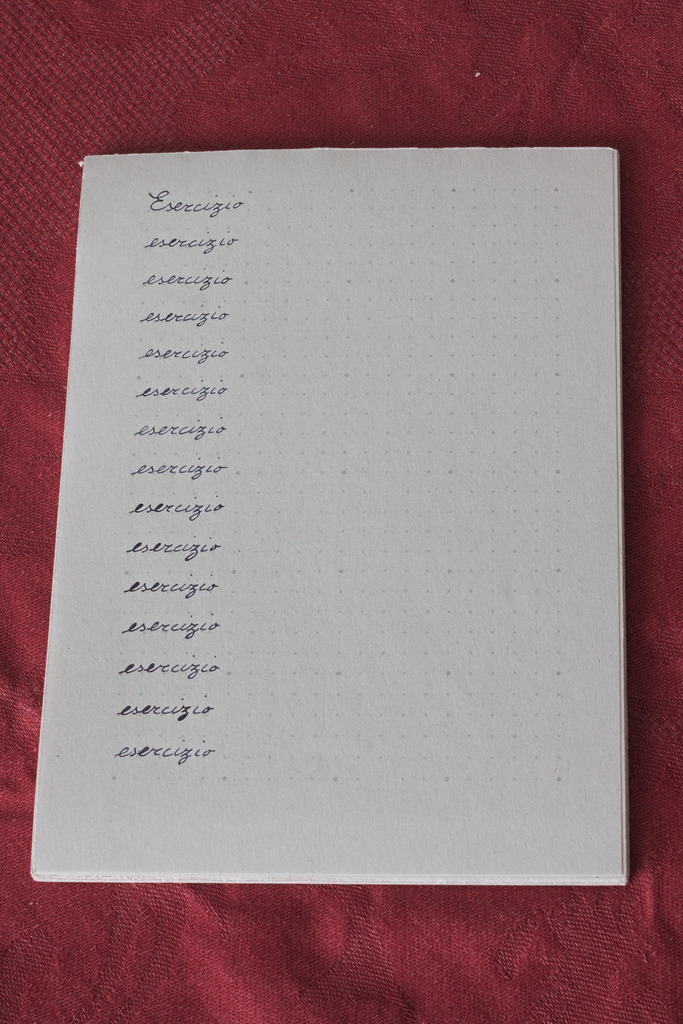 Esercizio
esercizio
esercizio
esercizio
esercizio
esercizio
esercizio
esercizio
esercizio
esercizio
esercizio
esercizio
esercizio
esercizio
esercizio